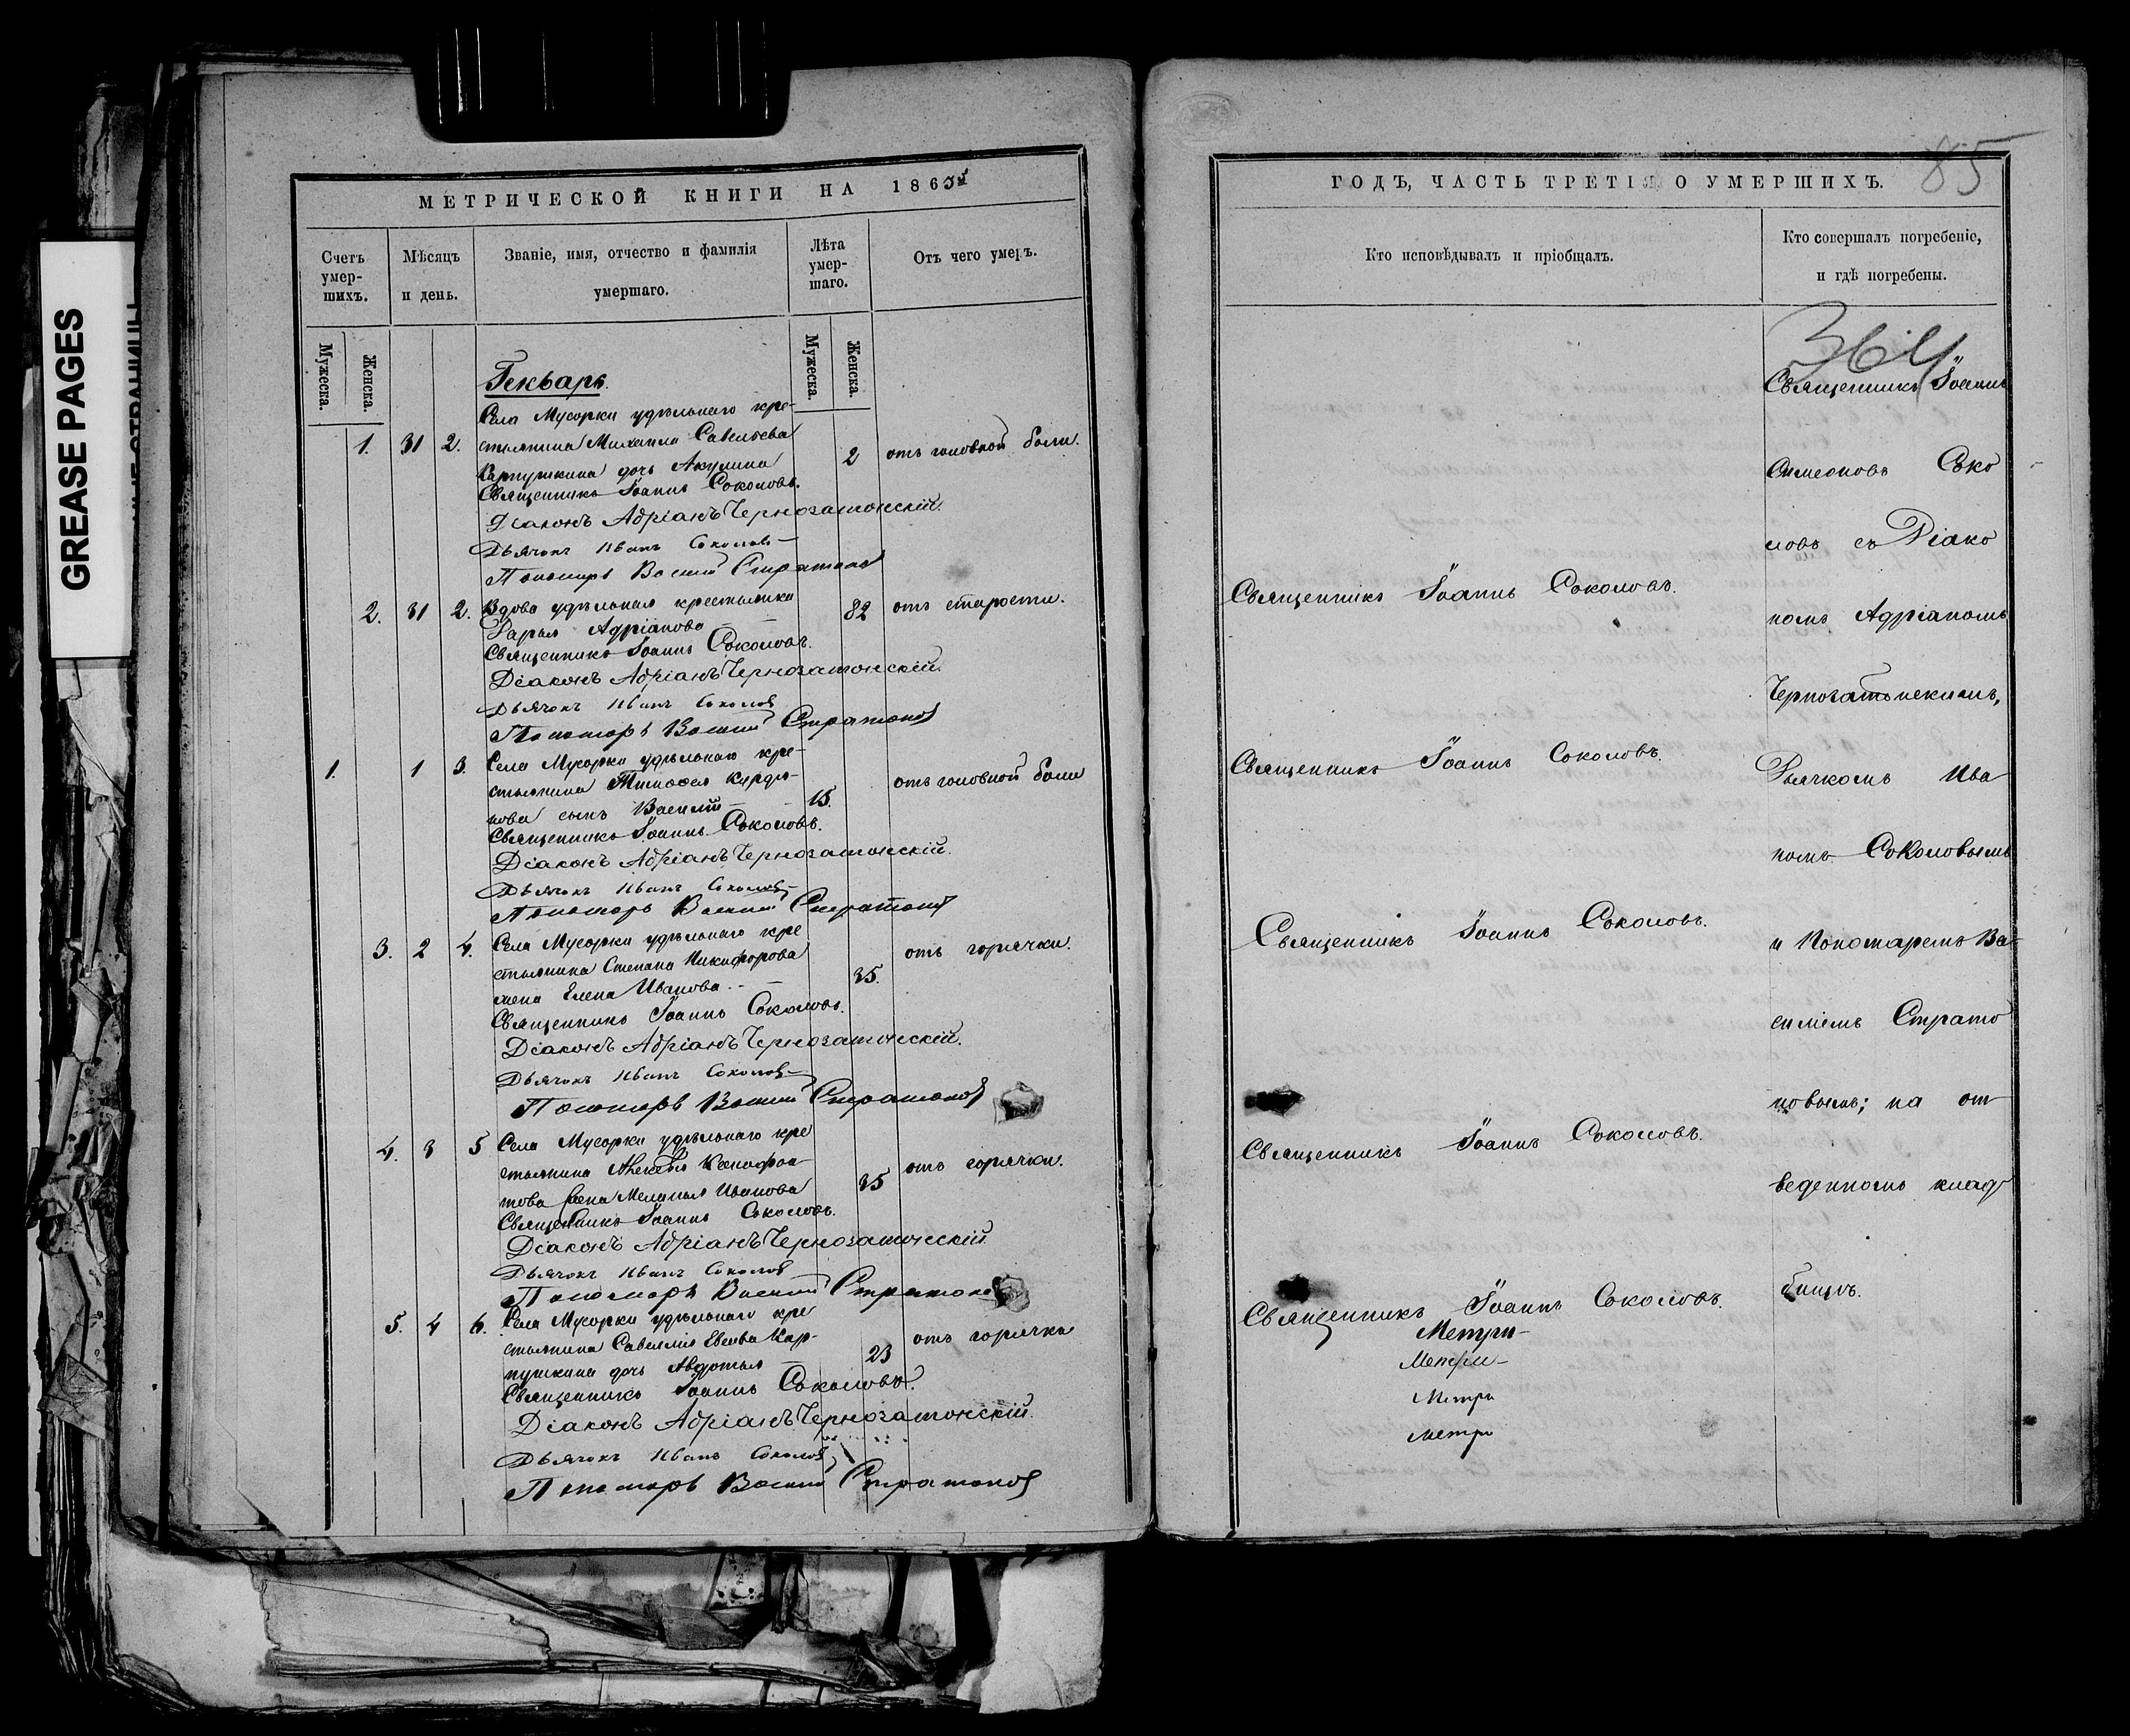 GREASE PAGES
МЕТРИЧЕСКОЙ КНИГИ НА 1865й
Счетъ умер-шихъ.
Мѣсяцъ и день.
Званіе, имя, отчество и фамилія умершаго.
Лѣта умер-шаго.
Отъ чего умеръ.
Мужеска.
Женска.
Мужеска.
Женска.
Генварь.
Села Мусорки удѣльнаго кре-
1. 31 2. стьянина Михаила Савельева 2 отъ головной боли.
Карпушкина дочь Акулина
Священникъ Іоаннъ Соколовъ.
Діаконъ Адріанъ Чернозатонскій.
Дьячокъ Иванъ Соколовъ
Пономарь Василій Стратоновъ
2. 31 2. Вдова удѣльная крестьянка 82 отъ старости.
Дарья Адріанова
Священникъ Іоаннъ Соколовъ.
Діаконъ Адріанъ Чернозатонскій.
Дьячокъ Иванъ Соколовъ
Пономарь Василій Стратоновъ
1. 1 3. Села Мусорки удѣльнаго кре-
стьянина Тимофея Курдю- отъ головной боли
кова сынъ Василій 15.
Священникъ Іоаннъ Соколовъ.
Діаконъ Адріанъ Чернозатонскій.
Дьячокъ Иванъ Соколовъ
Пономарь Василій Стратоновъ
3. 2 4. Села Мусорки удѣльнаго кре отъ горячки.
стьянина Степана Никифорова 35.
жена Елена Иванова.
Священникъ Іоаннъ Соколовъ.
Діаконъ Адріанъ Чернозатонскій.
Дьячокъ Иванъ Соколовъ
Пономарь Василій Стратоновъ
4. 3 5 Села Мусорки удѣльнаго кре
стьянина Алексѣя Ксенофон- отъ горячки.
това жена Меланья Иванова 35
Священникъ Іоаннъ Соколовъ.
Діаконъ Адріанъ Чернозатонскій
Дьячокъ Иванъ Соколовъ
Пономарь Василій Стратоновъ
5. 4 6. Села Мусорки удѣльнаго кре
стьянина Савелія Евсѣева Кар- отъ горячки
пушкина дочь Авдотья 23
Священникъ Іоаннъ Соколовъ.
Діаконъ Адріанъ Чернозатонскій.
Дьячокъ Иванъ Соколовъ
Пономарь Василій Стратоновъ
ГОДЪ, ЧАСТЬ ТРЕТІЯ О УМЕРШИХЪ.
85
Кто исповѣдывалъ и пріобщалъ.
Кто совершалъ погребеніе,
и гдѣ погребены.
364
Священникъ Іоаннъ Соколовъ.
Священникъ Іоаннъ Соколовъ.
Священникъ Іоаннъ Соколовъ.
Священникъ Іоаннъ Соколовъ.
Священникъ Іоаннъ Соколовъ.
Метри-
Метри-
Метри
Метри
Священникъ Іоаннъ
Симеоновъ Соко
ловъ съ Діако
номъ Адріаномъ
Чернозатонскимъ,
Дьячкомъ Ива
номъ Соколовымъ
и Пономаремъ Ва-
силіемъ Страто
новымъ; на от
веденномъ клад
бищѣ.